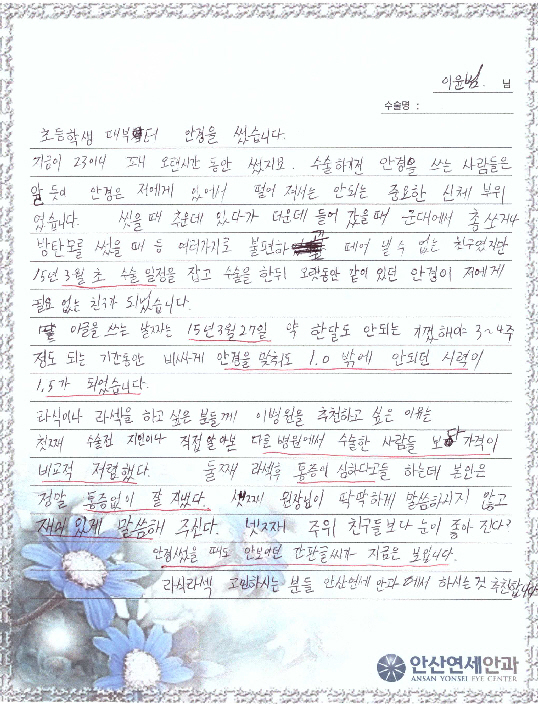 이윤범 님
수술명 :
초등학생 때부터 안경을 썼습니다.
지금이 23이니 꽤 오랜시간 동안 썼지요. 수술하기전 안경을 쓰는 사람들은
알 듯이 안경은 저에게 있어서 떨어져서는 안되는 중요한 신체 부위
였습니다. 씻을때 추운데 있다가 더운데 들어 갔을때 군대에서 총쏘거나
방탄모를 썼을때 등 여러가지로 불편하고 떼어 낼 수 없는 친구였지만
15년 3월 초 수술 일정을 잡고 수술을 한뒤 오랫동안 같이 있던 안경이 저에게
필요 없는 친구가 되었습니다.
이글을 쓰는 날짜는 15년3월27일 약 한달도 안되는 기껏해야 3~4주
정도 되는 기간동안 비싸게 안경을 맞춰도 1.0 밖에 안되던 시력이
1.5가 되었습니다.
라식이나 라섹을 하고 싶은 분들께 이병원을 추천하고 싶은 이유는
첫째 수술전 지인이나 직접 알아본 다른 병원에서 수술한 사람들 보다 가격이
비교적 저렴했다. 둘째 라섹후 통증이 심하다고들 하는데 본인은
정말 통증없이 잘 지냈다. 셋째 원장님이 딱딱하게 말씀하시지 않고
재미 있게 말씀해 주신다. 넷째 주위 친구들보다 눈이 좋아 진다?
안경썼을 때도 안보이던 간판글씨가 지금은 보입니다.
라식라섹 고민하시는 분들 안산연세 안과 에서 하시는것 추천합니다
안산연세안과
ANSAN YONSEI EYE CENTER